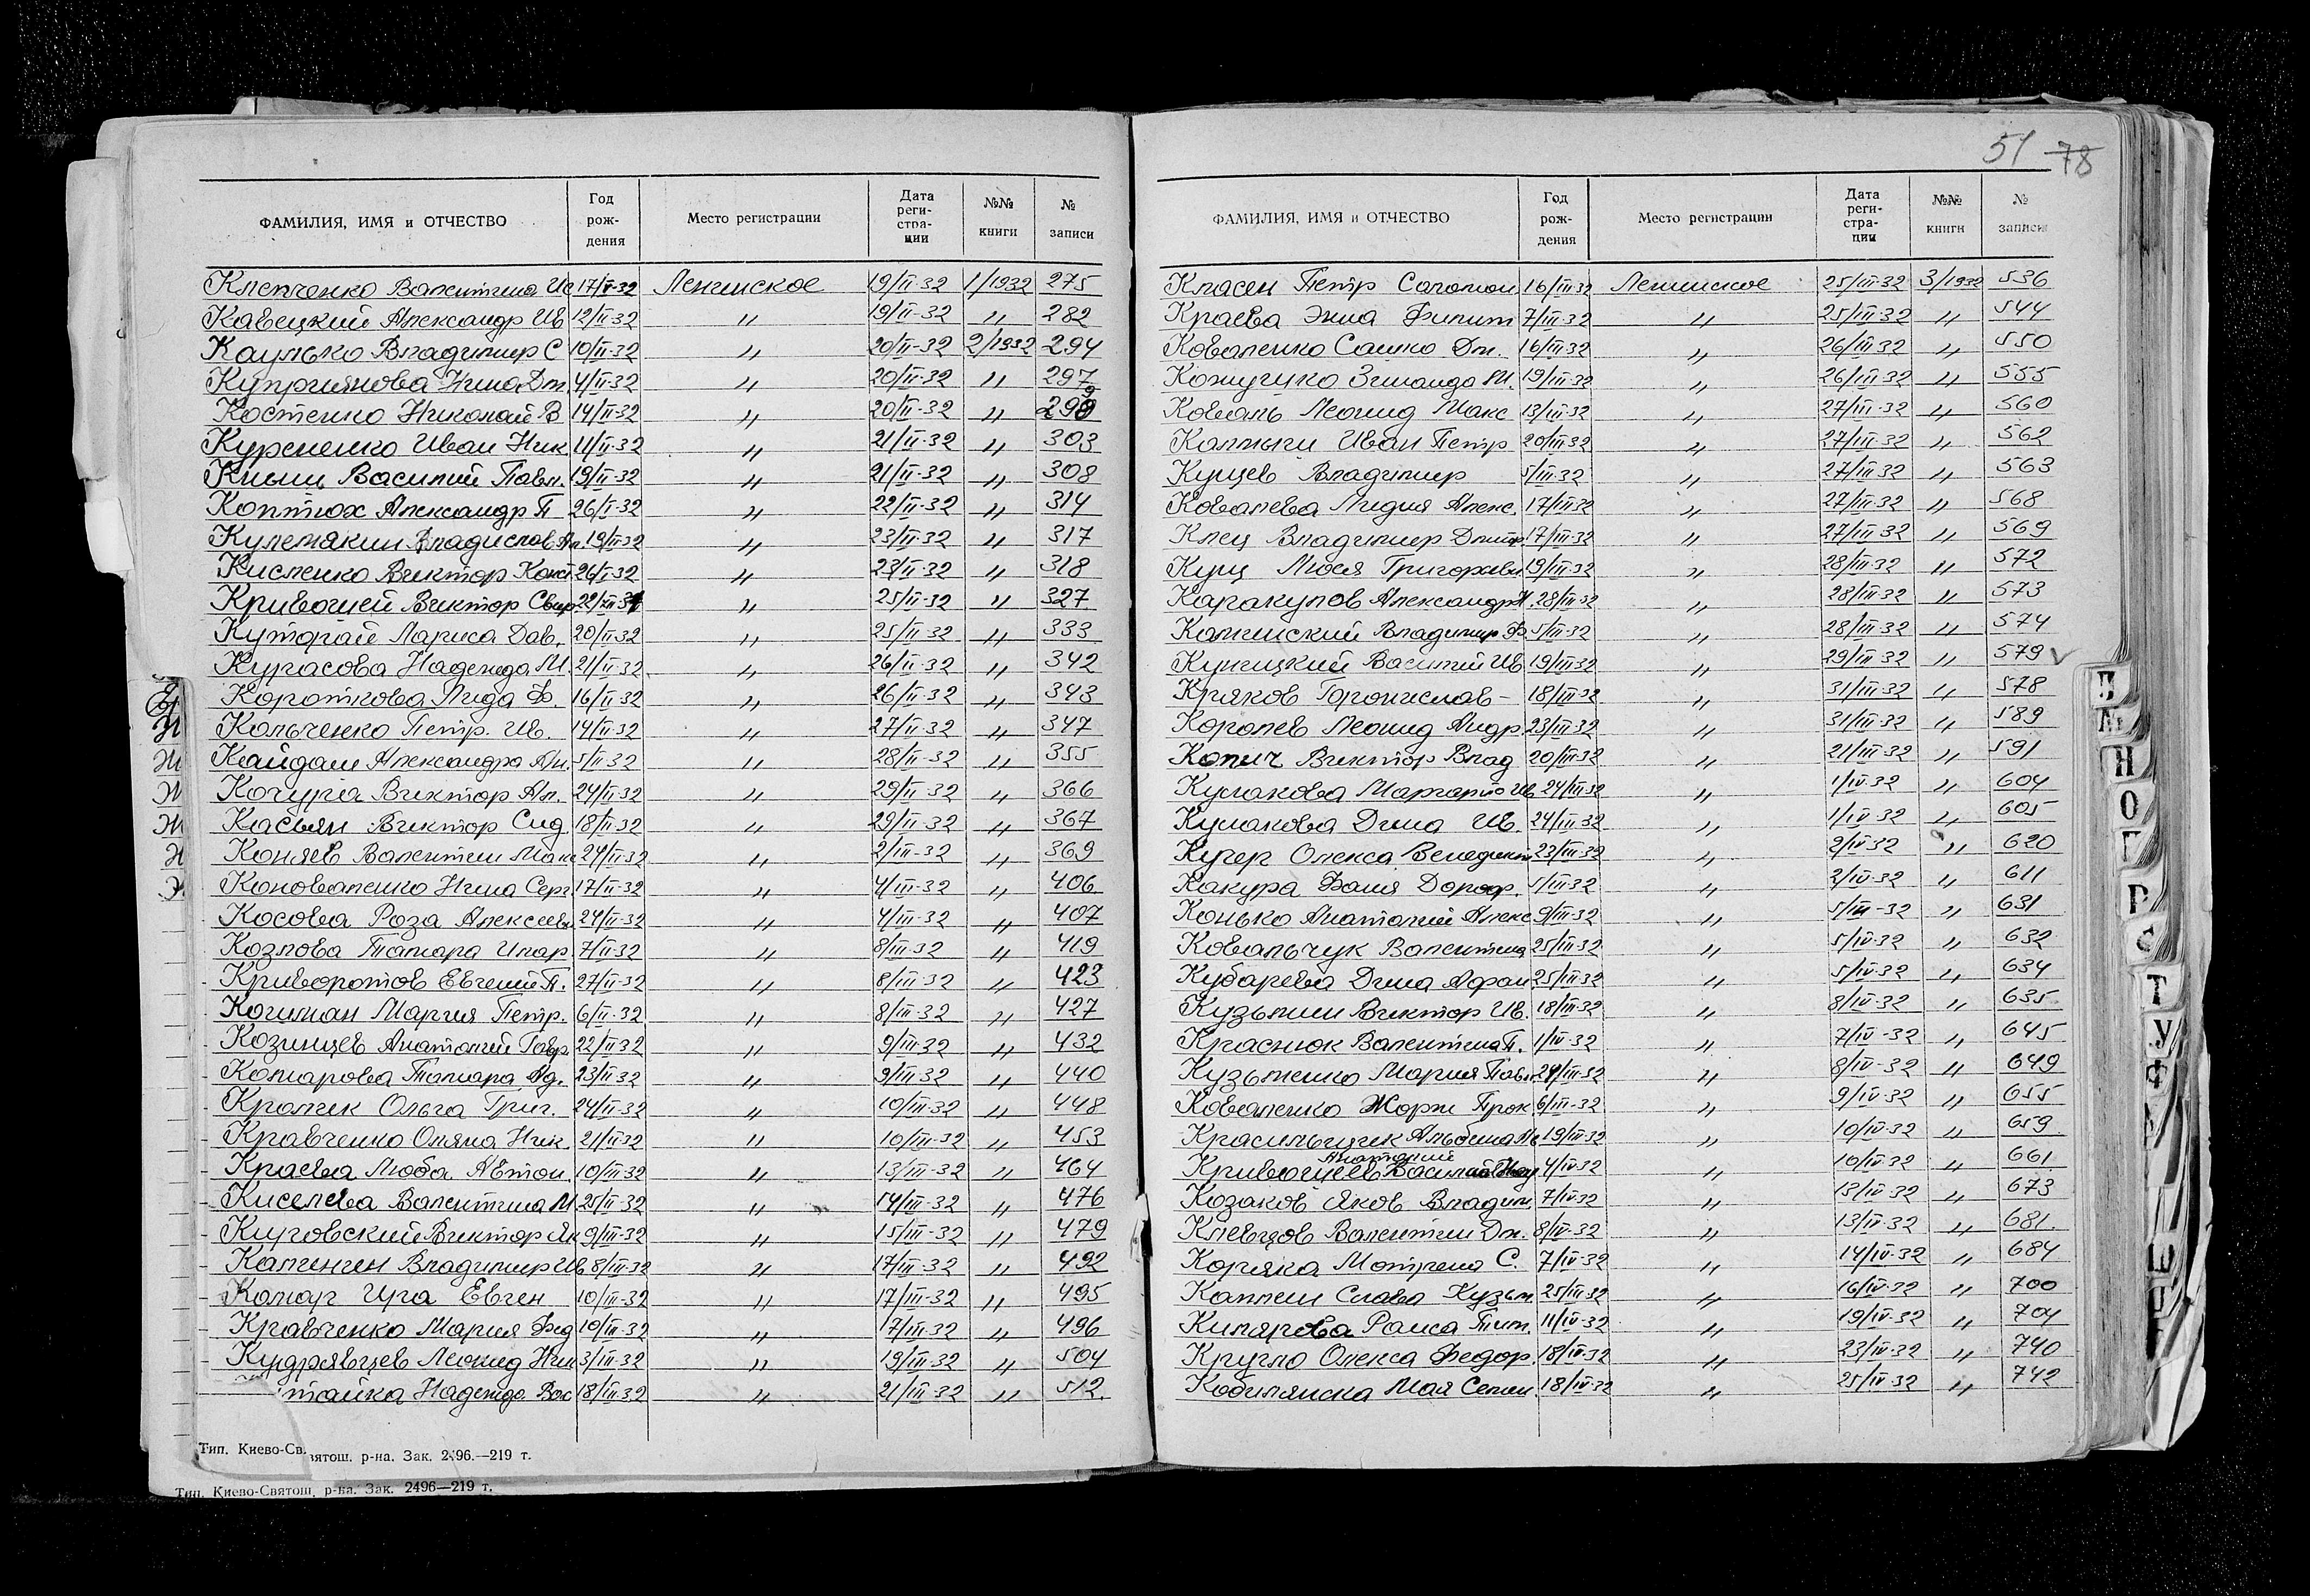 51 78
ФАМИЛИЯ, ИМЯ и ОТЧЕСТВО Год рождения Место регистрации Дата регистрации №№ книги № записи
Клепченко Валентина Ис 17/II-32 Ленинское 19/II-32 1/1932 275
Кавецкий Александр Ив 12/II-32 〃 19/II-32 〃 282
Каулько Владимир С 10/II-32 〃 20/II-32 2/1932 294
Куприянова Нина Дм. 4/II-32 〃 20/II-32 〃 297
Костенко Николай В 14/II-32 〃 20/II-32 〃 299
Курсненко Иван Ник 11/II-32 〃 21/II-32 〃 303
Кныш Василий Павл. 19/II-32 〃 21/II-32 〃 308
Коптюх Александр П 26/I-32 〃 22/II-32 〃 314
Кулемякин Владислав Ан. 19/II-32 〃 23/II-32 〃 317
Кисленко Виктор Конст 26/I-32 〃 23/II-32 〃 318
Кривошей Виктор Свир 22/XII-31 〃 25/II-32 〃 327
Куторай Лариса Дав. 20/II-32 〃 25/II-32 〃 333
Курасова Надежда М. 21/II-32 〃 26/II-32 〃 342
Короткова Лида Ф. 16/II-32 〃 26/II-32 〃 343
Кольченко Петр. Ив. 14/II-32 〃 27/II-32 〃 347
Кайдаш Александра Ан. 5/II-32 〃 28/II-32 〃 355
Кочура Виктор Ан. 24/II-32 〃 29/II-32 〃 366
Касьян Виктор Сид. 18/II-32 〃 29/II-32 〃 367
Коняев Валентин Макс 24/II-32 〃 2/III-32 〃 369
Коноваленко Нина Серг 17/II-32 〃 4/III-32 〃 406
Косова Роза Алексеевн 24/II-32 〃 4/III-32 〃 407
Козлова Тамара Илар 7/II-32 〃 8/III-32 〃 419
Криворотов Евгений П. 27/II-32 〃 8/III-32 〃 423
Когиман Мария Петр. 6/II-32 〃 8/III-32 〃 427
Козинцев Анатолий Гавр. 22/II-32 〃 9/III-32 〃 432
Комарова Тамара Ад. 23/II-32 〃 9/III-32 〃 440
Кролик Ольга Григ. 24/II-32 〃 10/III-32 〃 448
Кравченко Оляна Ник. 21/II-32 〃 10/III-32 〃 453
Краева Люба Автон. 10/III-32 〃 13/III-32 〃 464
Киселева Валентина М 25/II-32 〃 14/III-32 〃 476
Кировский Виктор Як 9/III-32 〃 15/III-32 〃 479
Каленген Владимир Ив 8/III-32 〃 17/III-32 〃 492
Комар Ира Евген 10/III-32 〃 17/III-32 〃 495
Кравченко Мария Фед 10/III-32 〃 17/III-32 〃 496
Кудрявцев Леонид Ник 3/III-32 〃 19/III-32 〃 504
тайка Надежда Вас 18/III-32 〃 21/III-32 〃 512
Тип. Киево-Св.
вятош. р-на. Зак. 2496.—219 т.
Тип. Киево-Святош. р-на. Зак. 2496—219 т.
ФАМИЛИЯ, ИМЯ и ОТЧЕСТВО Год рождения Место регистрации Дата регистрации №№ книги № записи
Класен Петр Соломон 16/III-32 Ленинское 25/III-32 3/1932 536
Краева Энна Филип 7/III-32 〃 25/III-32 〃 544
Коваленко Сашко Дм. 16/III-32 〃 26/III-32 〃 550
Кожушко Зинаида М. 19/III-32 〃 26/III-32 〃 555
Коваль Леонид Макс 13/III-32 〃 27/III-32 〃 560
Калмыш Иван Петр 20/III-32 〃 27/III-32 〃 562
Кущев Владимир 5/III-32 〃 27/III-32 〃 563
Ковалева Лидия Алекс. 17/III-32 〃 27/III-32 〃 568
Клец Владимир Дмитр. 17/III-32 〃 27/III-32 〃 569
Куц Люся Григорьевн 19/III-32 〃 28/III-32 〃 572
Каракулов Александр Н. 28/III-32 〃 28/III-32 〃 573
Калинский Владимир Ф. 5/III-32 〃 28/III-32 〃 574
Куницкий Василий Ив 19/III-32 〃 29/III-32 〃 579 ✓
Кряков Бронислав - 18/III-32 〃 31/III-32 〃 578
Королев Леонид Андр. 23/III-32 〃 31/III-32 〃 589
Копич Виктор Влад 20/III-32 〃 21/III-32 〃 591
Кулакова Маргарита Ив 24/III-32 〃 1/IV-32 〃 604
Кулакова Дина Ив. 24/III-32 〃 1/IV-32 〃 605
Кугер Олекса Венедикт 23/III-32 〃 2/IV-32 〃 620
Какура Фаня Дороф. 5/III-32 〃 2/IV-32 〃 611
Конько Анатолий Алекс 9/III-32 〃 5/III-32 〃 631
Ковальчук Валентина 25/III-32 〃 5/IV-32 〃 632
Кубарева Дина Афан 25/III-32 〃 5/IV-32 〃 634
Кузьмин Виктор Ив. 18/III-32 〃 8/IV-32 〃 635
Краснюк Валентина П. 1/IV-32 〃 7/IV-32 〃 645
Кузьменко Мария Павл. 24/III-32 〃 8/IV-32 〃 649
Коваленко Жорж Прок. 6/III-32 〃 9/IV-32 〃 655
Красильщик Альбина Ль 19/IV-32 〃 10/IV-32 〃 659
Анатолий
Кривошеев Василий Нау 4/IV-32 〃 10/IV-32 〃 661
Козаков Яков Владим. 7/IV-32 〃 13/IV-32 〃 673
Клевцов Валентин Дм. 8/IV-32 〃 13/IV-32 〃 681
Коряка Мотрена С. 7/IV-32 〃 14/IV-32 〃 684
Каплин Слава Кузьм 25/III-32 〃 16/IV-32 〃 700
Кипярова Раиса Тим. 11/IV-32 〃 19/IV-32 〃 704
Кругло Олекса Федор. 18/IV-32 〃 23/IV-32 〃 740
Кобилянска Мая Семен 18/IV-32 〃 25/IV-32 〃 742
Н
О
П
Р
С
Т
У
Ф
Ш